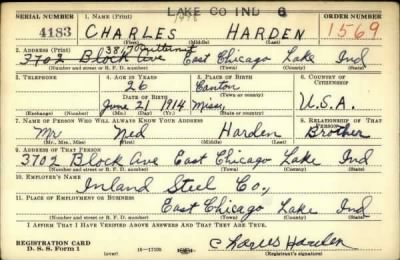 LAKE CO IND 6
SERIAL NUMBER 1. NAME (Print) ORDER NUMBER
4183 CHARLES HARDEN 1569
(First) (Middle) (Last)
2. ADDRESS (Print)
3817
3702 Block Ave East Chicago Lake Ind
(Number and street or R. F. D. number) (Town) (County) (State)
3. TELEPHONE 4. AGE IN YEARS 5. PLACE OF BIRTH 6. COUNTRY OF CITIZENSHIP
26 Canton
DATE OF BIRTH (Town or county)
June 21 1914 Miss. U.S.A.
(Exchange) (Number) (Mo.) (Day) (Yr.) (State or country)
7. NAME OF PERSON WHO WILL ALWAYS KNOW YOUR ADDRESS 8. RELATIONSHIP OF THAT PERSON
Mr Ned Harden Brother
(Mr., Mrs., Miss) (First) (Middle) (Last)
9. ADDRESS OF THAT PERSON
3702 Block Ave East Chicago Lake Ind
(Number and street or R. F. D. number) (Town) (County) (State)
10. EMPLOYER'S NAME
Inland Steel Co.,
11. PLACE OF EMPLOYMENT OR BUSINESS
East Chicago Lake Ind
(Number and street or R. F. D. number) (Town) (County) (State)
I AFFIRM THAT I HAVE VERIFIED ABOVE ANSWERS AND THAT THEY ARE TRUE.
REGISTRATION CARD
D. S. S. Form 1 16-17105 Charles Harden
(Registrant's signature)